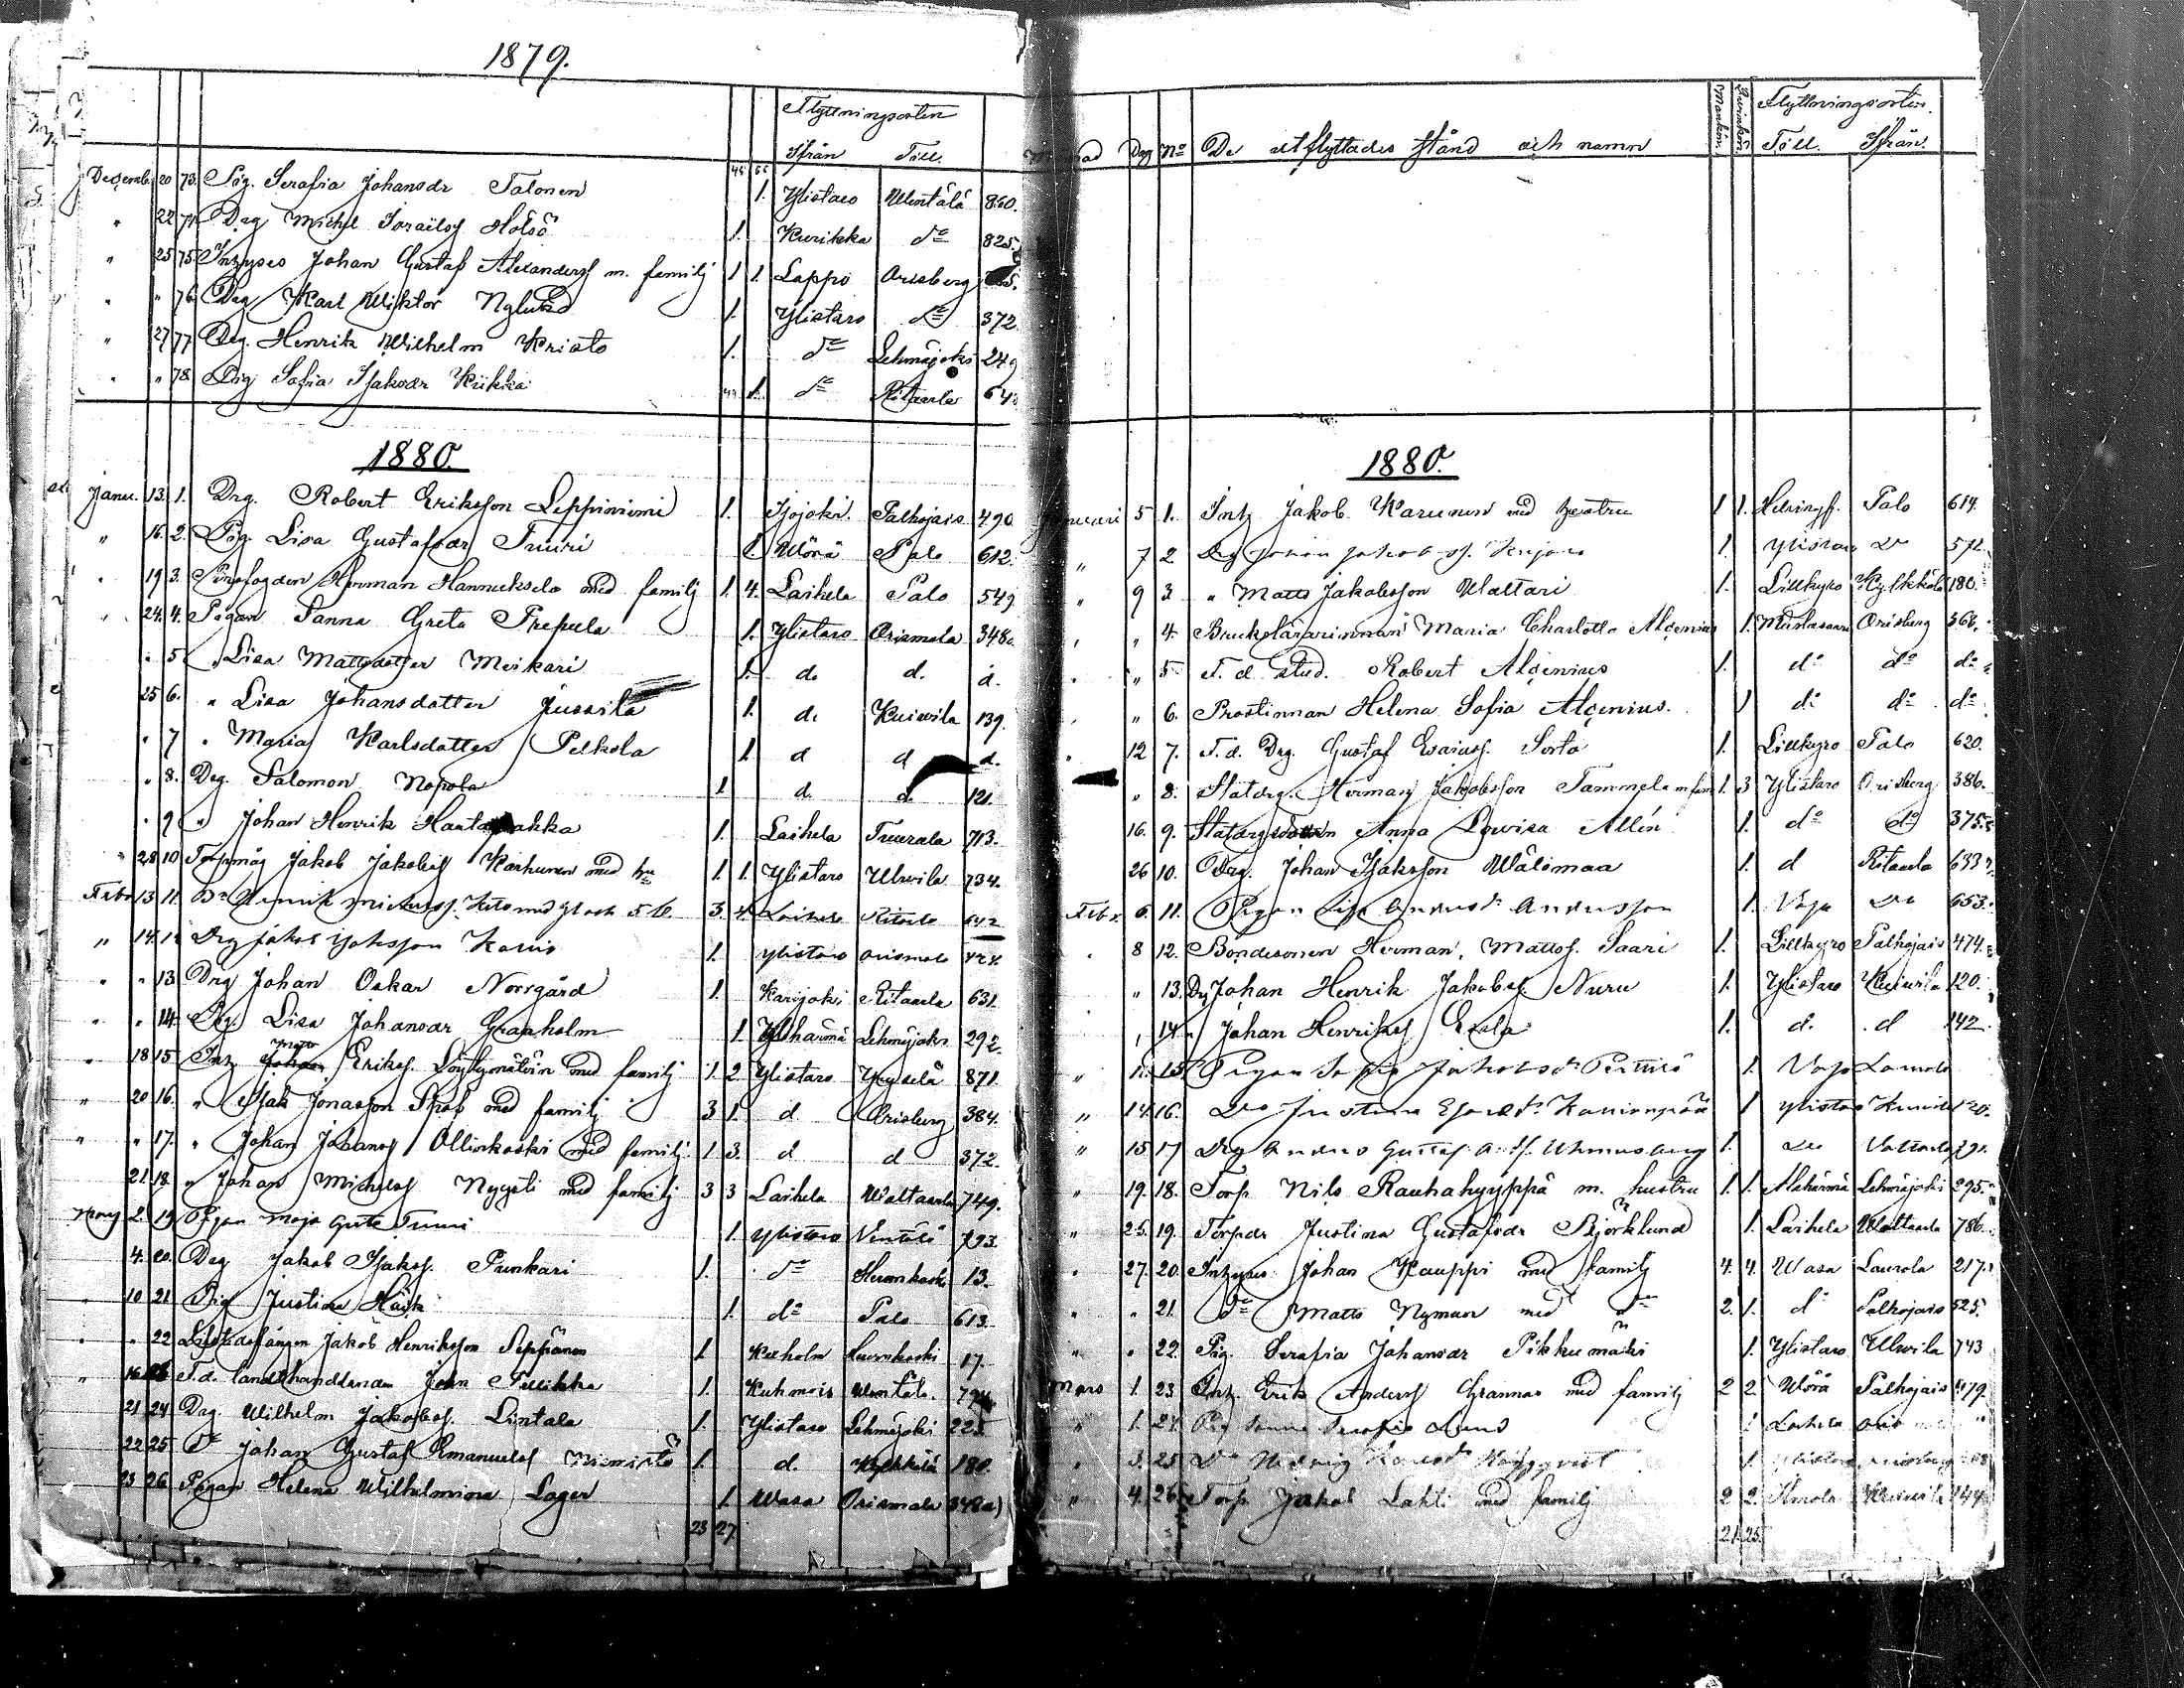 1879.
Flyttningsorten
Ifrån Till.
Decemb. 20 73. Pig. Serafia Johansdr Talonen 1. Ylistaro Wentälä 860.
" 22 74 Drg Michel Israelss Hölsö 1. Kurikka do 825.
" 25 75 Inhyses Johan Gustaf Alexanderss m. familj 1 1. Lappo Orisberg
" " 76 Drg Karl Wiktor Nylund 1. Ylistaro do 372
" 27 77 Drg. Henrik Wilhelm Kristo 1. do Lehmäjoki 249
" " 78 Pig Sofia Isaksdr Kükka 1. do Ritaarla 64
1880.
Janu. 13. 1. Drg. Robert Eriksson Leppiniemi 1. Isojoki. Palhojais 490
" 16. 2. Pig. Lisa Gustafsdr Tuuri 1. Wörå Palo 612.
" 19 3. Herman Hannuksela med familj 1. 4. Laihela Palo 549
" 24. 4. Pigan Sanna Greta Prepula 1. Ylistaro Orismala 348
" . 5. " Lisa Mattsdotter Meikari 1. d. d. d.
25 6. " Lisa Johansdotter Jussila 1. d. Kuivila 139.
" 7 " Maria Karlsdotter Pelkola 1. d d d.
" 8. Drg Salomon Nopola 1 d. d. 121.
" 9 " Johan Henrik 1. Laihela Tuurala 713.
" 28 10 Jakob Jakobss Karhunen med hu 1. 1. Ylistaro Ulwila 734.
Febr 13 11. 3. 4. Laihela Ritaala 642
" 14. 12 Drg Jakob Isaksson 1. Ylistaro Orismala
" " 13 Drg Johan Oskar Norrgård 1. Karijoki Ritaarla 631.
" " 14. Pig. Lisa Johansdr Granholm 1 Ylihärmä Lehmäjoki 292.
" 18 15 Inh Johan Erikss. med familj 1. 2. Ylistaro 871.
" 20 16. " Isak Jonasson med familj 3 1. d Orisberg 384.
" " 17. " Johan Johanss Ollinkoski med familj 1 3. d d 372.
21 18. " Johan Michelss Nygsti med familj 3 3 Laihela Waltaarla 749.
Mars 2. 19 Pigan Maja Greta Tuuri 1. Ylistaro Ventälä 793.
4. 20. Drg Jakob Isakss. Punkari 1. do 13.
" 10 21 Pig Justina Häik 1. do Palo 613.
" " 22 Jakob Henriksson Seppänen 1 17.
" 16 T.d. landthandlanden Pellikka 1. Kuhmois Wentälä. 794
21 24 Drg. Wilhelm Jakobss. Lintala 1. Ylistaro Lehmäjoki 225
22 25 do Johan Gustaf Emanuelss Niemistö 1. d. Kylkkälä 180.
23 26. Pigan Helena Wilhelmina Lager 1. Wasa Orismala 348a)
23 27.
Månad Dag No De utflyttades stånd och namn Mankön. Qvinkön. Flyttningsorten.
Till. Ifrån.
1880.
Januari 5 1. Inh Jakob Karunen med hustru 1 1. Helsingf. Palo 614.
" 7 2 Drg Johan Jakobss. 1. Ylistaro Do 572.
" 9 3 " Matts Jakobsson Waltari 1. Lillkyro Kylkkälä 180.
" " 4. Maria Charlotta Alcenius 1. Orisberg 368.
" " 5. T. d. stud. Robert Alcenius 1. do do do
" " 6. Prostinnan Helena Sofia Alcenius. 1 do do do
" 12 7. T. d. Drg. Gustaf Esaiass. Sorta 1. Lillkyro Palo 620.
" " 8. Statdrg. Herman Jakobsson Tammela m fam 1. 3 Ylistaro Orisberg 386.
16. 9. Anna Lowisa Allén 1. do do 375.
26 10. Drg. Johan Isaksson Wälimaa 1. d Ritaarla 633
Febr. 6. 11. Pigan Lisa Andersdr Andersson 1. Vasa Do 653.
" 8 12. Bondesonen Herman Mattss. Saari 1. Lillkyro Palhojais 474.
" 13. Drg Johan Henrik Jakobss Nuru 1. Ylistaro Kuivila 120.
" 14. " Johan Henrikss Erola 1. d. d 142.
" 15. Pigan Sofia Jakobsdr 1. Vasa Laurola
" 14. 16. Do Justina 1 Ylistaro Kuivila 120.
" 15 17 Drg Anders Gustaf 1. Do
" 19. 18. Torp. Nils Rauhahyyppä m. hustru 1. 1. Alahärmä Lehmäjoki 295.
" 25. 19. Torpdr Justina Gustafsdr Björklund 1. Laihela Waltaarla 786.
" 27. 20. Inhyses Johan Kauppi med familj 4. 4. Wasa Laurola 217.
" " 21. do Matts Nyman med do 2. 1. do Palhojais 525.
" " 22. Pig. Serafia Johansdr Pikkumäki 1. Ylistaro Ulwila 743
Mars 1. 23 Inh. Erik Anderss Grannas med familj 2 2. Wörå Palhojais 479.
" 1. 24. Pig Sanna Serafia Lund 1. Laihela
" 3. 25 Do Hedvig 1.
" 4. 26. Torp. Jakob Lahti med familj 2 2. Ilmola Kuivila 144
21. 25.